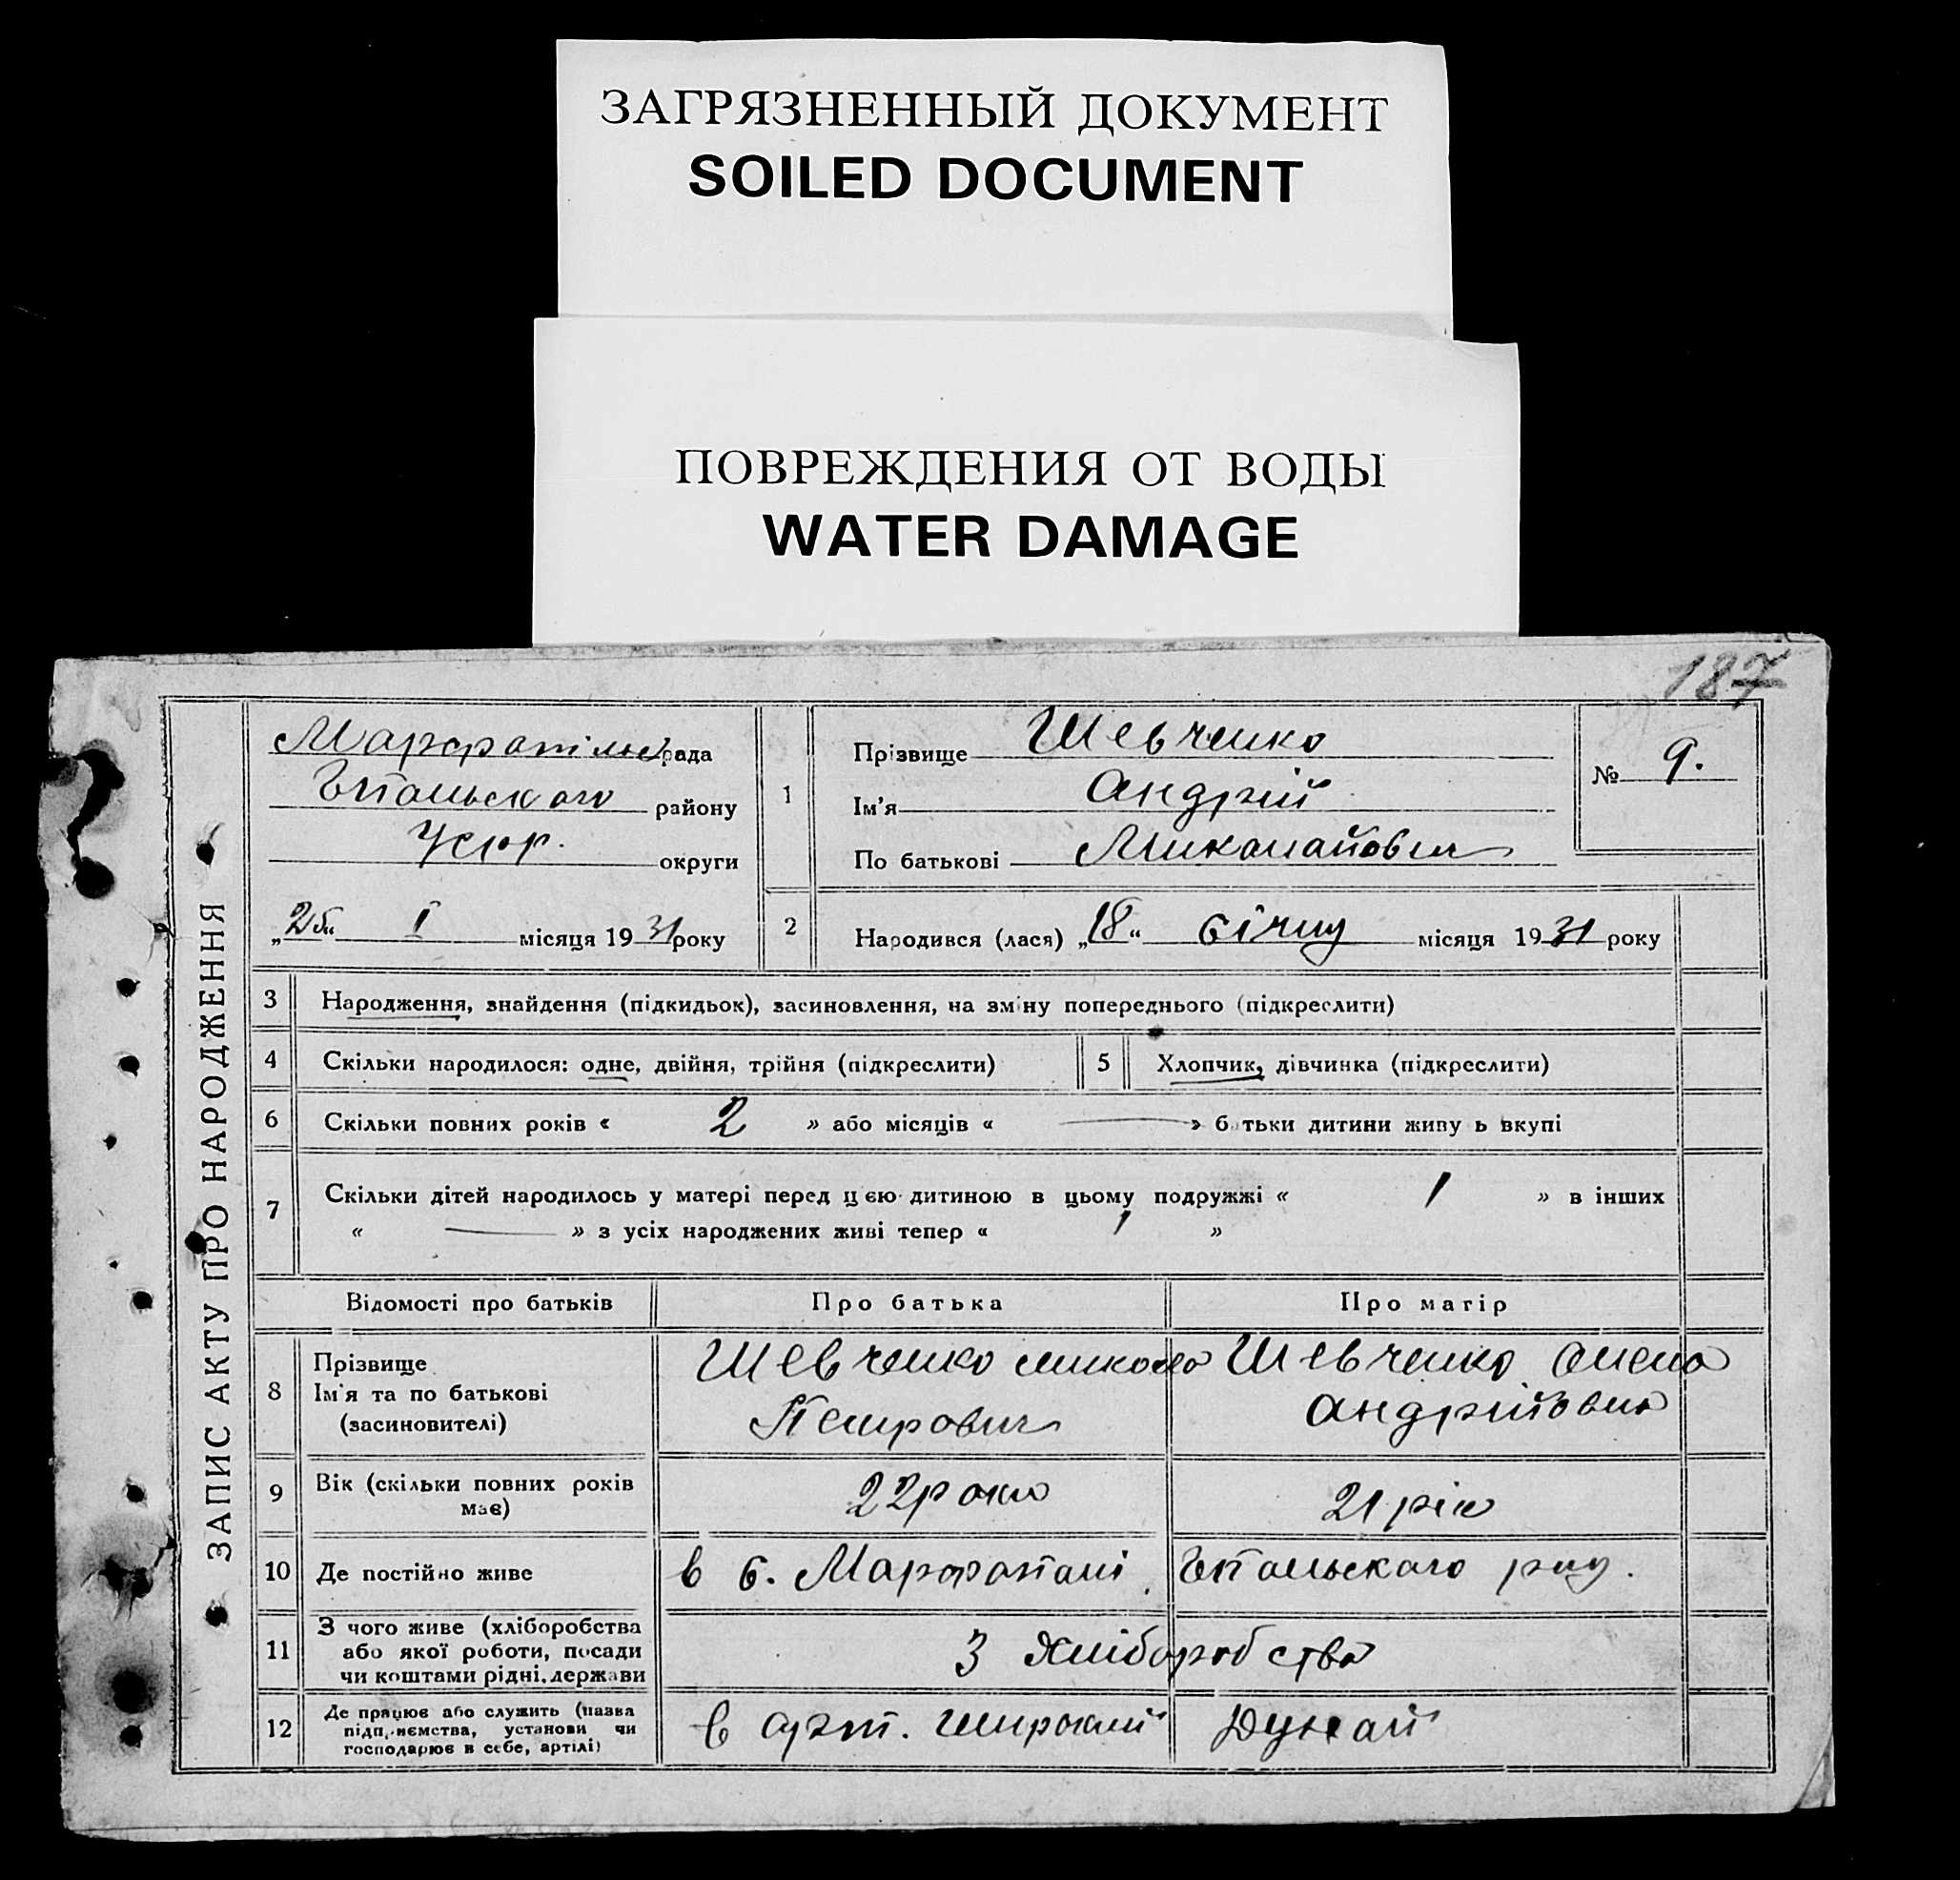 ЗАГРЯЗНЕННЫЙ ДОКУМЕНТ
SOILED DOCUMENT
ПОВРЕЖДЕНИЯ ОТ ВОДЫ
WATER DAMAGE
187
ЗАПИС АКТУ ПРО НАРОДЖЕННЯ
рада
району
округи
„25“ I місяця 1931 року
1
Прізвище Шевченко
Ім'я Андрій
По батькові Миколайович
№ 9.
2 Народився (лася) „18“ січня місяця 1931 року
3 Народження, знайдення (підкидьок), засиновлення, на зміну попереднього (підкреслити)
4 Скільки народилося: одне, двійня, трійня (підкреслити)
5 Хлопчик, дівчинка (підкреслити)
6 Скільки повних років « 2 » або місяців « — » батьки дитини живуть вкупі
7 Скільки дітей народилось у матері перед цією дитиною в цьому подружжі « 1 » в інших
« — » з усіх народжених живі тепер « 1 »
Відомості про батьків Про батька Про матір
8
Прізвище
Ім'я та по батькові
(засиновителі)
Шевченко Микола
Петрович
Шевченко Олена
Андріївна
9 Вік (скільки повних років
має)
22 роки
21 рік
10 Де постійно живе
в с. Марфополі, району.
11 З чого живе (хліборобства
або якої роботи, посади
чи коштами рідні, держави
З хліборобства
12 Де працює або служить (назва
підприємства, установи чи
господарює в себе, артілі)
в арт. Широкий Дунай